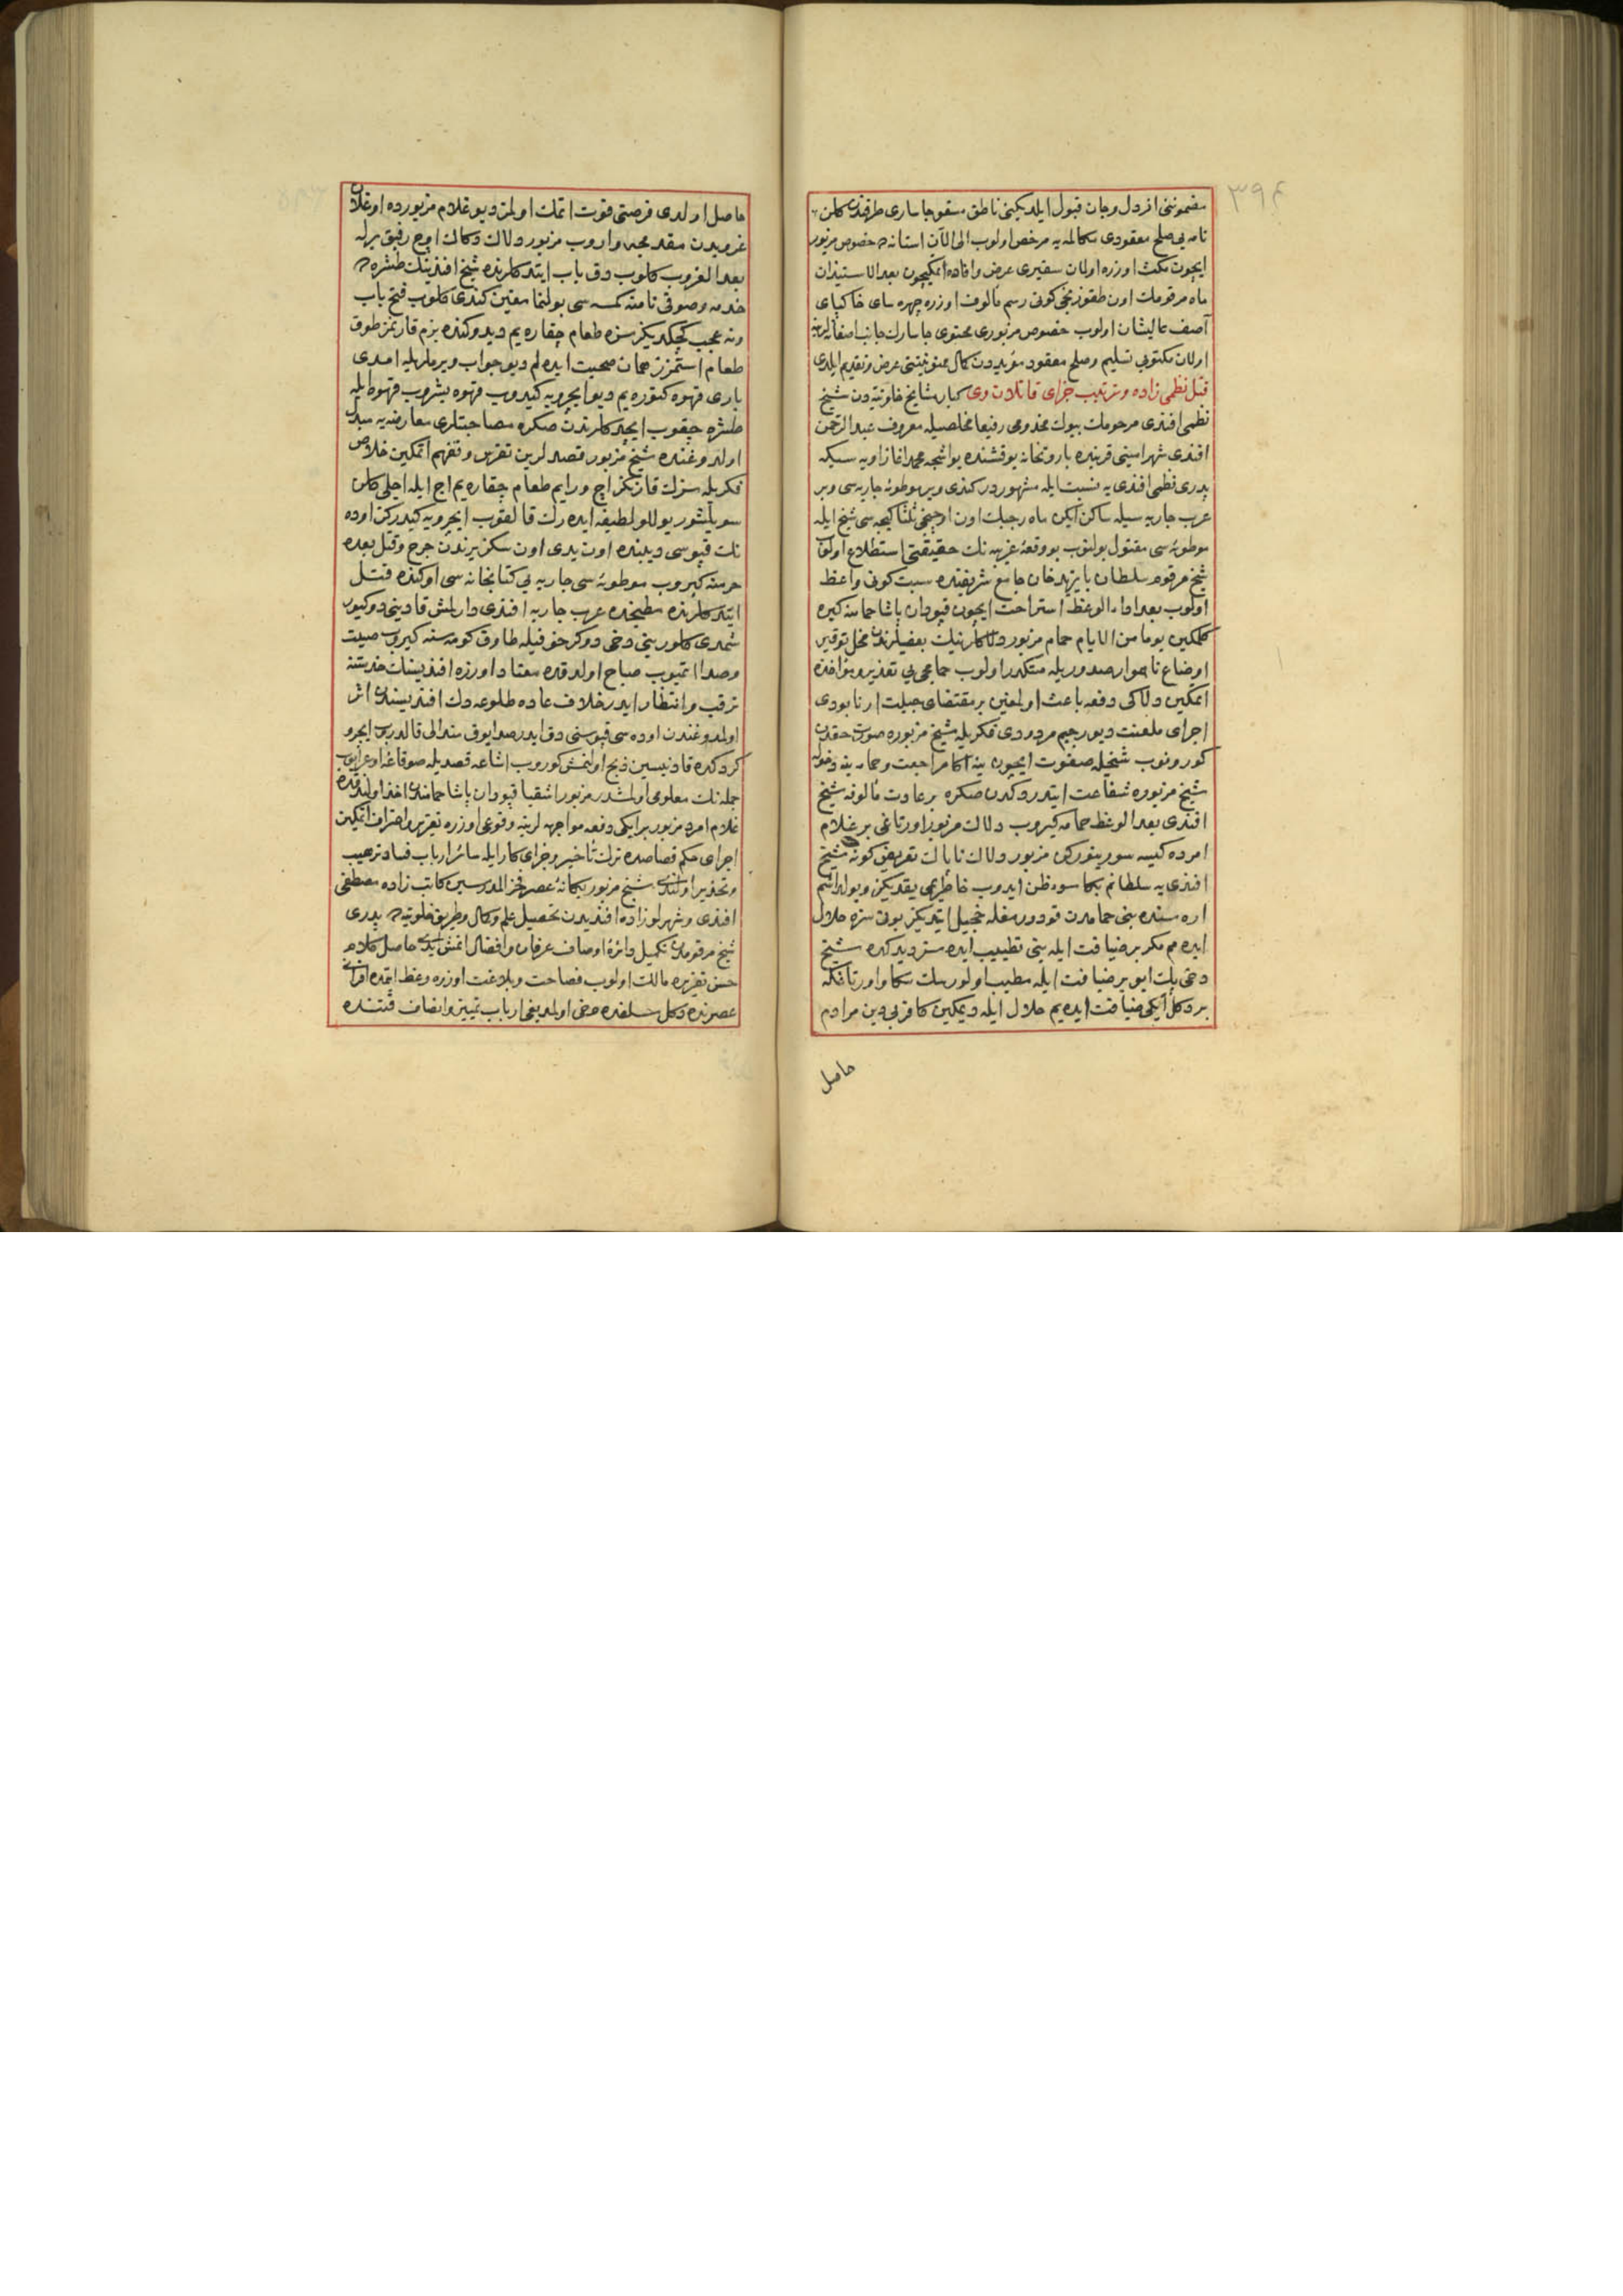 ٣٩٤
مضموننی از دل و جان قبول ایلدیکنی ناطق مسقو جاساری طرفندن کلن
نامه یی صلح معقودی مکالمه یه مرخص اولوب الی الآن استانه ده خصوص مزبور
ایچون مکث اوزره اولان سفیری عرض و افاده ایتمکیچون بعد الاستیذان
ماه مرقومك اون طقوزنجی کونی رسم مألوف اوزره چهره سای خاکپای
آصف عالیشان اولوب خصوص مزبوری محتوی جاسارك جانب آصفانه لرینه
اولان مکتوبی تسلیم و صلح معقود مؤبددن کمال ممنونیتنی عرض و تقدیم ایلدی
قتل نظمی زاده و ترتیب جزای قاتلان وی کبار مشایخ خلوتیه دن شیخ
نظمی افندی مرحومك بیوك مخدومی رفیعا مخلصیله معروف عبد الرحمن
افندی شهر امینی قربنده باروتخانه یوقشنده یواشجه محمد اغا زاویه سنکه
پدری نظمی افندی یه نسبت ایله مشهوردر کندی و بر موطوئه جاریه سی و بر
عرب جاریه سیله ساکن ایکن ماه رجبك اون اوچنجی ثلثا کیجه سی شیخ ایله
موطوئه سی مقتول بولنوب بو وقعهٔ غریبه نك حقیقتی استطلاع اولندقده
شیخ مرقوم سلطان بایزید خان جامع شریفنده سبت کونی واعظ
اولوب بعد اداء الوعظ استراحت ایچون قپودان پاشا حمامنه کیره
کلمکین یوما من الایام حمام مزبور دلاکلرینك بعضیلرندن مخل توقیر
اوضاع ناهموار صدوریله متکدر اولوب حمامجی یی تعذیر و مؤاخذه
ایتمکین دلاکی دفعه باعث اولمغین بر مقتضای جبلت ارنابودی
اجرای ملعنت دیو رجیم مردودی فکریله شیخ مزبوره صورت حقدن
کورونوب شیخیله صفوت ایچون ینه اکا مراجعت و حمامینه دخوله
شیخ مزبوره شفاعت ایتدردکدن صکره بر عادت مألوفه شیخ
افندی بعد الوعظ حمامه کیروب دلاك مزبور اورتاغی بر غلام
امرده کیسه سورینورکن مزبور دلاك ناپاك تقریض کونه شیخ
افندی یه سلطانم بکا سوء ظن ایدوب خاطریمی یقدیکز و یولداشم
اره سنده بنی حمامدن قودورمغله تخجیل ایتدیکز بونی سزه حلال
ایده مم مکر بر ضیافت ایله بنی تطییب ایده سز دیدکده شیخ
دخی پك ایو بر ضیافت ایله مطیب اولورسك سکا و اورتاغکه
بر دکل ایکی ضیافت ایده یم حلال ایله دیمکین کافر بی دین مرادم
حاصل
حاصل اولدی فرصتی فوت ایتمك اولمز دیو غلام مزبورده اوغلان
غروبدن مقدمجه واروب مزبور دلاك دکاك اوچ رفیق برله
بعد الغروب کلوب دق باب ایتدکلرنده شیخ افندینك طشره ده
خدمه و صوفی نامنه کمسه سی بولنمامغین کندی کلوب فتح باب
و نه عجب کچکدیکز سزه طعام چقاره یم دیدوکنده بزم قارنمز طوق
طعام استمزز همان صحبت ایده لم دیو جواب ویرملریله امدی
باری قهوه کتوره یم دیو ایچرویه کیدوب قهوه پشروب قهوه ایله
طشره چیقوب ایچدکلرندن صکره مصاحبتلری معارضه یه مبدل
اولدوغنده شیخ مزبور قصدلرین تفرس و تفهم ایتمکین خلاص
فکریله سزك قارنکز اچ ورایم طعام چقاره یم اچ ایله اجلی کلن
سویلشور یوللو لطیفه ایده رك قالقوب ایچرویه کیدرکن اوده
نك قپوسی دیبنده اون یدی اون سکز یرندن جرح و قتل بعده
حرمنه کیروب موطوئه سی جاریه یی کتابخانه سی اوکنده قتل
ایتدکلرنده مطبخده عرب جاریه افندی دارلمش قادینی دوکیور
شمدی کلور بنی دخی دوکر خوفیله طاوق کومه سنه کیروب صیت
و صدا ایتمیوب صباح اولدقده معتاد اوزره افندیسنك خدمتنه
ترقب و انتظار ایدر خلاف عاده طلوعه دك افندیسندن اثر
اولمدوغندن اوده سی قپوسنی دق ایدر صدا یوق سندالی قالدرب ایچرو
کردکده قادینسین ذبح اولنمش کوروب اشاعه قصدیله صوقاغه اوغرایوب
جمله نك معلومی اولمشدر مزبور اشقیا قپودان پاشا حمامندن اخذ اولندقده
غلام امرد مزبور بر ایکی دفعه مواجهه لرینه وقوعی اوزره تقریر و اعتراف ایتمکین
اجرای حکم قصاصده ترك تأخیر و جزای کار ایله سائر ارباب فساد ترهیب
و تحذیر اولندی شیخ مزبور یکانهٔ عصر فخر المدرسین کاتب زاده مصطفی
افندی و شهرلو زاده افندیدن تحصیل علم و کمال و طریق خلوتیه ده پدری
شیخ مرقومدن تکمیل دائرهٔ اوصاف عرفان و افضال ایتمش ایدی حاصل کلام
حسن تقریره مالك اولوب فصاحت و بلاغت اوزره وعظ ایتمده اقرانی
عصرنده دکل سلفده دخی اولمدیغی ارباب تمییز و انصاف قتنده